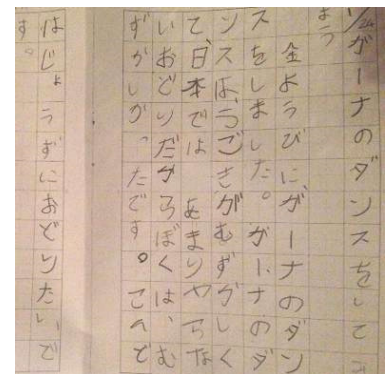 ガーナのダンスをして
よう
金ようびに、ガーナのダン
スをしました。ガーナのダ
ンスは、うごきがむずがしく
て、日本では あまりやらな
いおどりだからぼくは、む
ずがしがったです。こんど
はじょうずにおどりたいで
す。